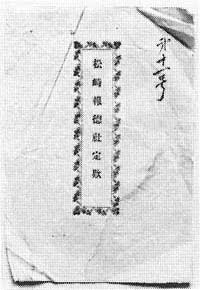 第十一号
松崎報徳社定款